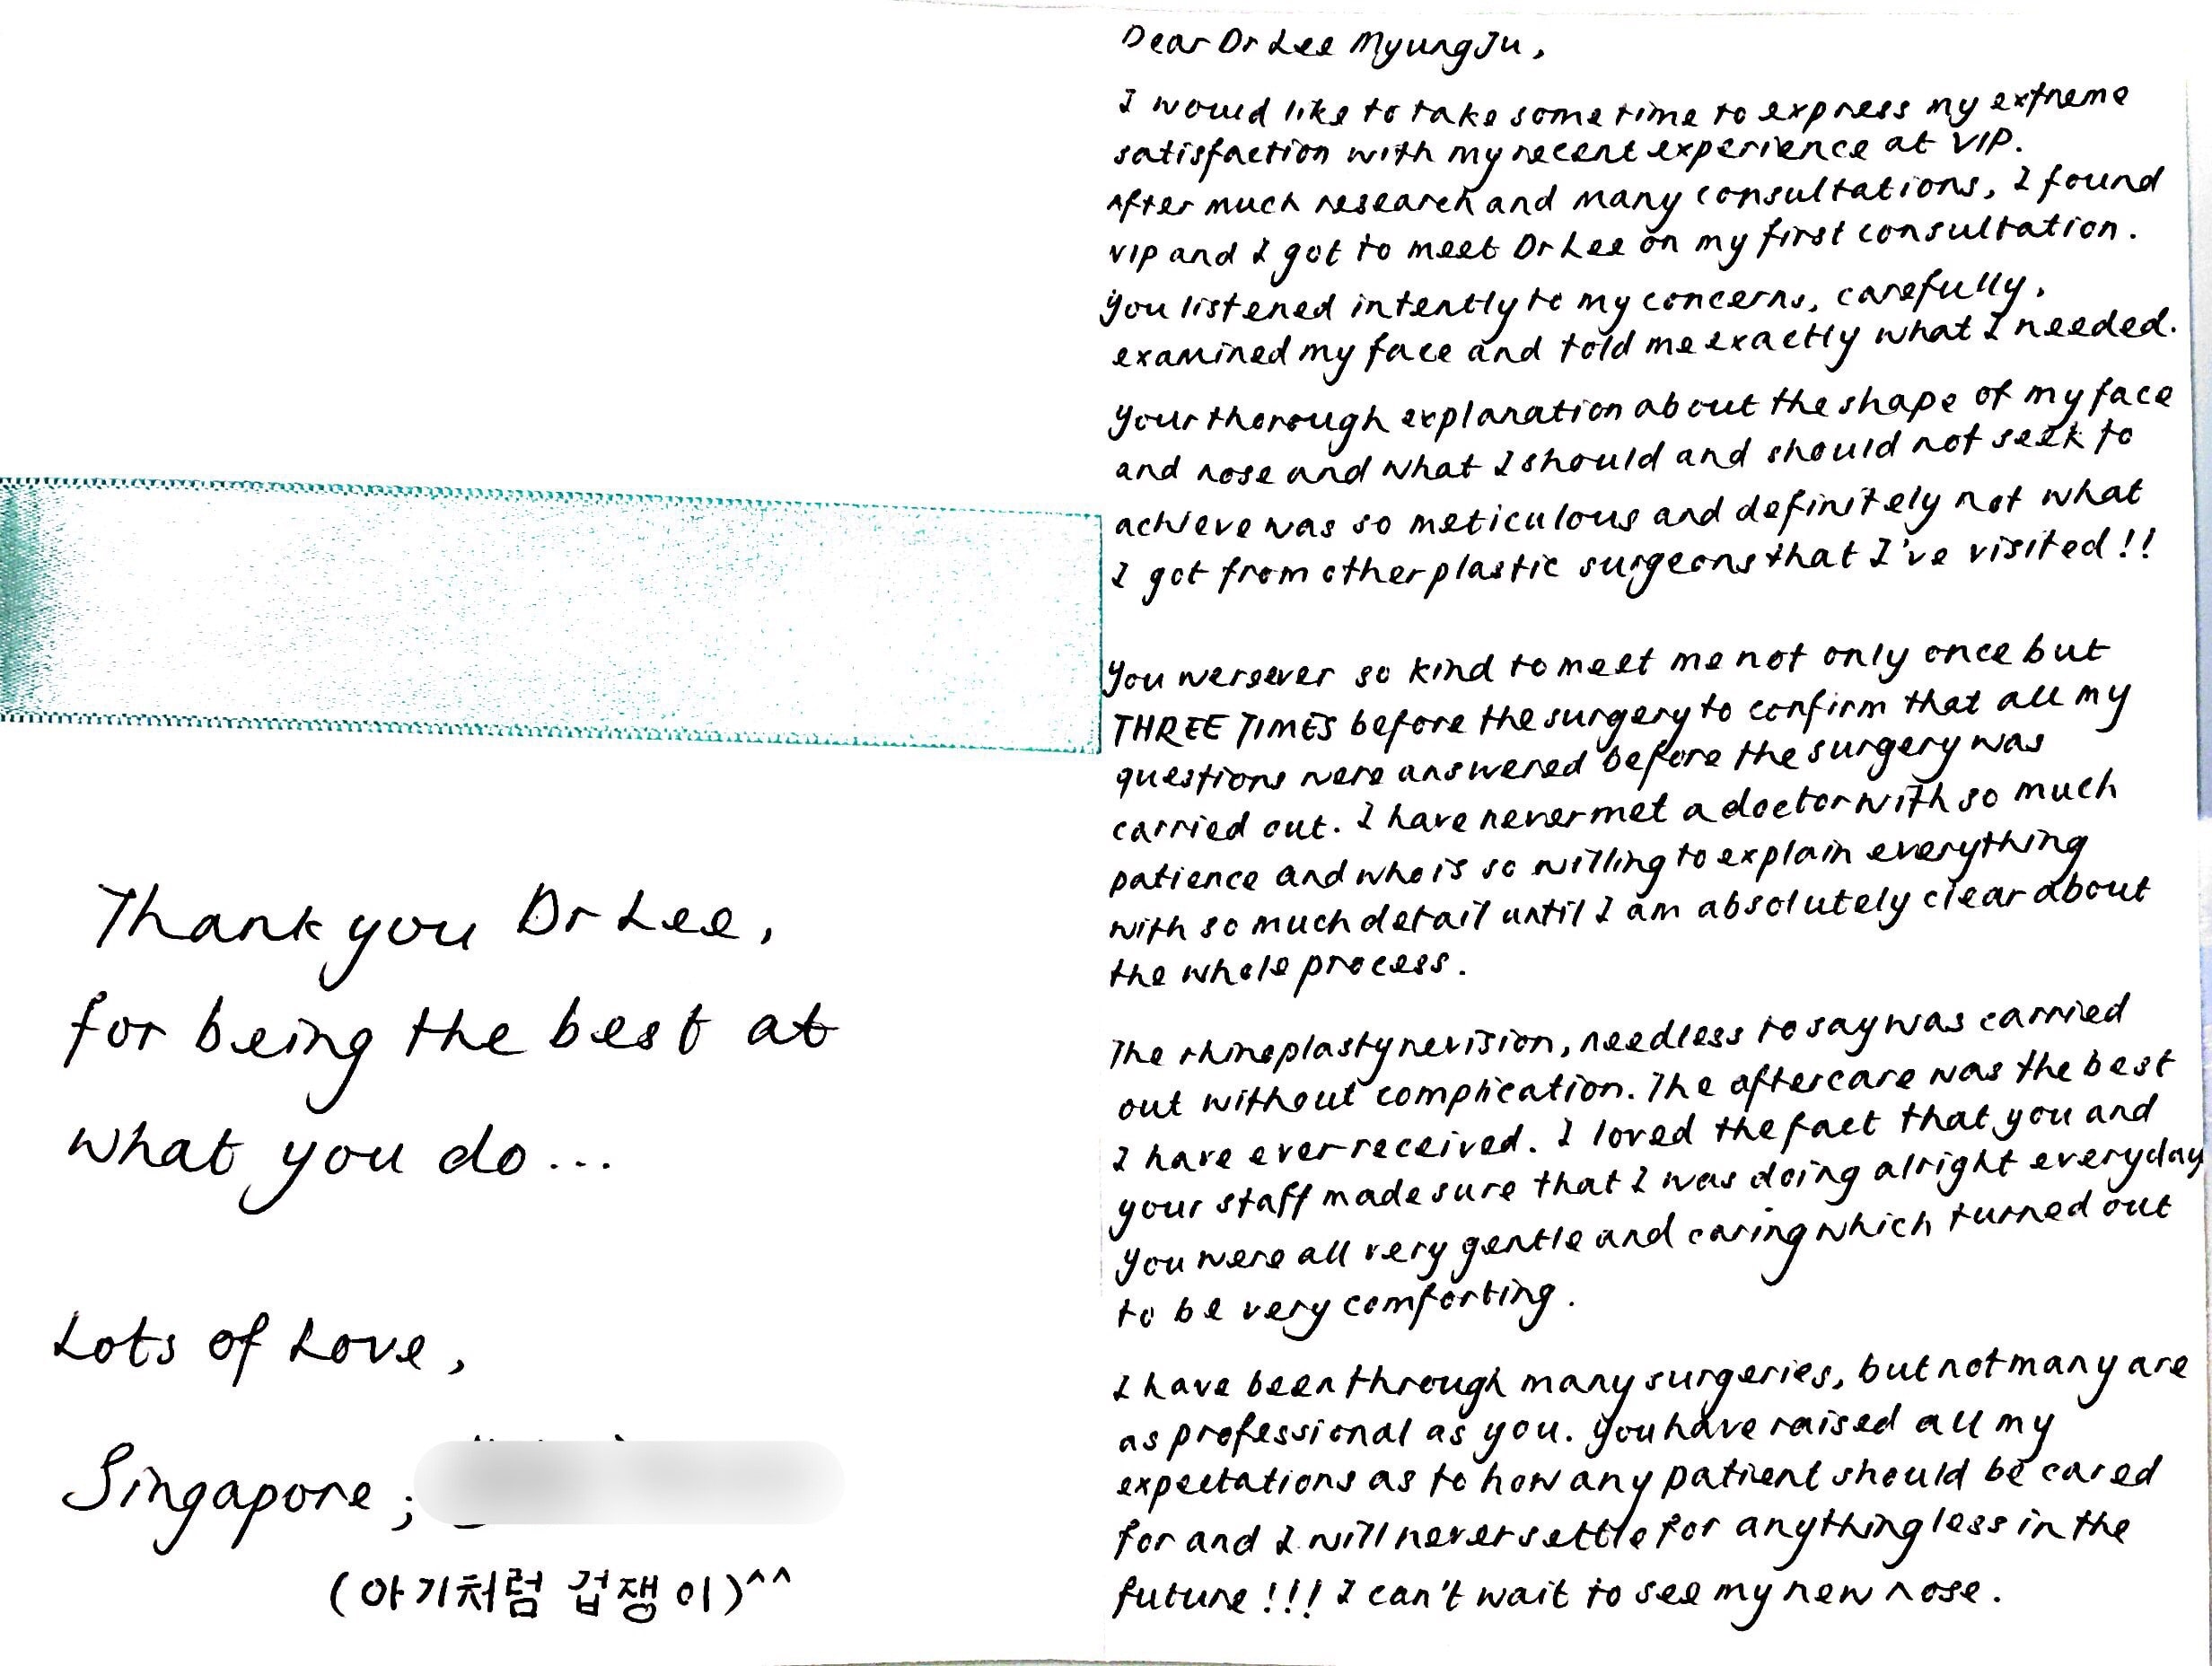 Dear Dr Lee MyungJu,
I would like to take some time to express my extreme
satisfaction with my recent experience at VIP.
After much research and many consultations, I found
VIP and I got to meet Dr Lee on my first consultation.
You listened intently to my concerns, carefully,
examined my face and told me exactly what I needed.
Your thorough explanation about the shape of my face
and nose and what I should and should not seek to
achieve was so meticulous and definitely not what
I got from other plastic surgeons that I've visited!!
You were ever so kind to meet me not only once but
THREE TIMES before the surgery to confirm that all my
questions were answered before the surgery was
carried out. I have never met a doctor with so much
patience and who is so willing to explain everything
with so much detail until I am absolutely clear about
the whole process.
The rhinoplasty revision, needless to say was carried
out without complication. The aftercare was the best
I have ever received. I loved the fact that you and
your staff made sure that I was doing alright everyday
You were all very gentle and caring which turned out
to be very comforting.
I have been through many surgeries, but not many are
as professional as you. You have raised all my
expectations as to how any patient should be cared
for and I will never settle for anything less in the
future!!! I can't wait to see my new nose.
Thank you Dr Lee,
for being the best at
what you do...
Lots of Love,
Singapore;
(아기처럼 겁쟁이)^^